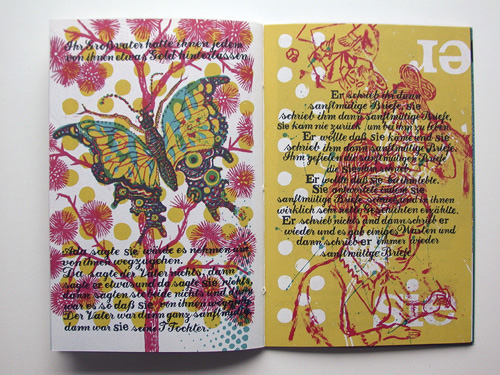 Ihr Großvater hatte ihnen jedem
von ihnen etwas Gold hinterlassen.
Ada sagte sie würde es nehmen um
von ihnen wegzugehen.
Da sagte der Vater nichts, dann
sagte er etwas und da sagte sie nichts,
dann sagten sie beide nichts und dann
war es so daß sie von ihnen wegging.
Der Vater war dann ganz sanftmütig
dann war sie seine Tochter.
er
Er schrieb ihr dann
sanftmütige Briefe, sie
schrieb ihm dann sanftmütige Briefe,
sie kam nie zurück um bei ihm zu leben.
Er wollte daß sie käme und sie
schrieb ihm dann sanftmütige Briefe.
Ihm gefielen die sanftmütigen Briefe
die sie ihm schrieb.
Er wollte daß sie bei ihm lebte.
Sie antwortete indem sie
sanftmütige Briefe schrieb und in ihnen
wirklich sehr nette Geschichten erzählte.
Er schrieb nichts und dann schrieb er
wieder und es gab einiges Warten und
dann schrieb er immer wieder
sanftmütige Briefe